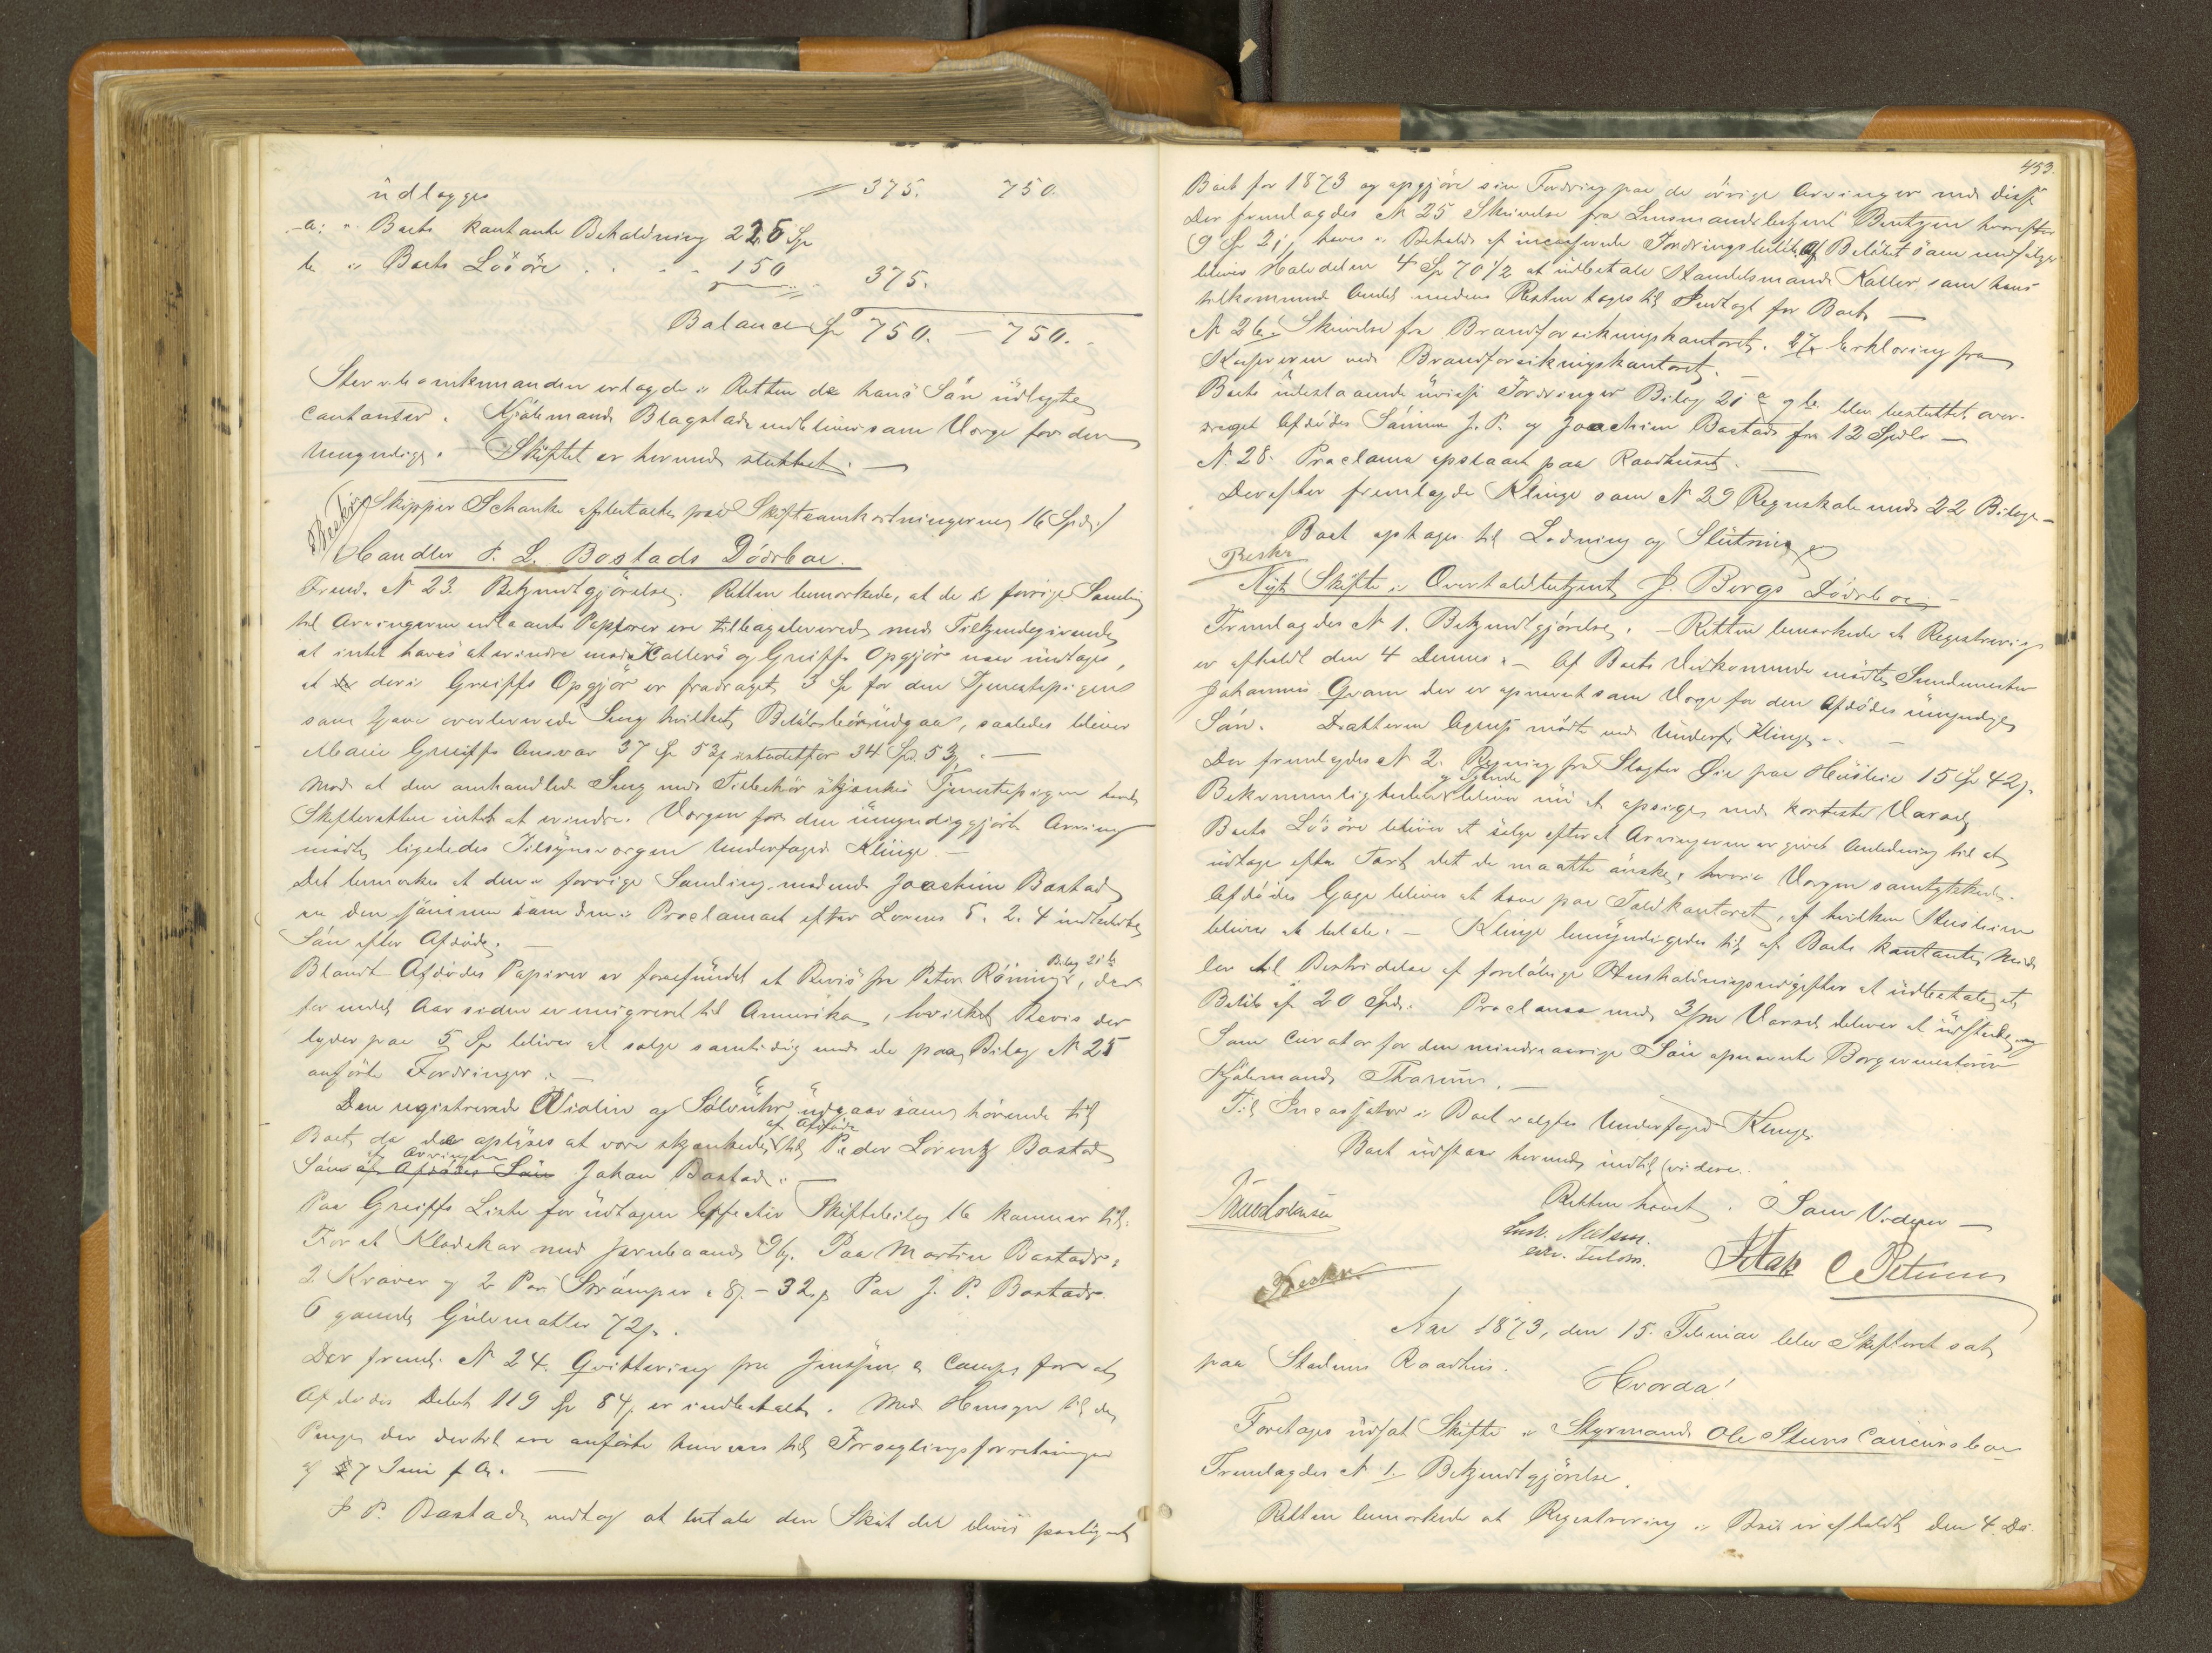 udlægges 375. 750.
a: i Boets kontante Beholdning 225 Sp
b. i Boets Løsøre . . . 150 375.
Balance Sp 750. — 750.
erlagde i Retten de hans Søn udlagte
Contanter. Kjøbmand Blagstad som Værge for den
Umyndige. Skiftet er hermed sluttet. —
Skipper Schanke paa 16 Spd.)
Beskr.
Handler P. L. Bostads Dødsbo.
Freml. N 23. Bekjendtgjørelse. Retten bemærkede, at de i forrige Samling
til Arvingerne Papirer ere tilbageleverede med Tilkjendegivende
at intet haves at erindre mod Kallers og Greiffs Opgjør naar undtages,
at der i Greiffs Opgjør er fradraget 3 Sp for den Tjenestepigen
som Gave overleverede Seng hvilket Beløb bør udgaa, saaledes bliver
Marie Greiffs Ansvar 37 Sp 53 istedetfor 34 Sp. 53. —
Mod at den omhandlede Seng med Tilbehør skjænkes Tjenestepigen havde
Skifteretten intet at erindre. Værgen for den umyndiggjorte Arving
mødte, ligeledes Tilsynsværgen Underfoged Klinge. —
Det bemærkes at den i forrige Samling mødende Joachim Bostad
er den samme som den i Proclamaet efter Lovens 5. 2. 4 indkaldte
Søn efter Afdøde. —
Blandt Afdødes Papirer er forefundet et Bevis fra Peter Rønning, Bilag 21 b der
for endel Aar siden er emigreret til Amerika, hvilket Bevis der
lyder paa 5 Sp bliver at sælge samtidig med de paa Bilag N 25
anførte Fordringer. —
Den registrerede Violin og Sølvuhr udgaar som hørende til
Boet, da de oplyses at være skjænkede af Afdøde til Peder Lorentz Bostad
Søn af Arvingen Johan Bostad. —
Paa Greiffs Liste for udtagne Effecter Skiftebilag 16 kommer til:
For et Klædeskar med Jernbaand 96. Paa Martin Bostads:
2 Kraver og 2 Par Strømper a 8 – 32 Paa J. P. Bostads
6 gamle Gulvmatter 72.
Der freml. N 24. Qvittering fra Jenssen & Comp. for at
Afdødes Debet 119 Sp 84 er indbetalt. Med Hensyn til de
Penge der dertil ere anførte henvises til Forseglingsforretningen
af 27 Juni f A. —
J P. Bostad vedtog at betale den Skat der bliver paalignet
453.
Boet for 1873 og opgjøre sin Fordring paa de øvrige Arvinger med disse
Der fremlagdes N 25 Skrivelse fra Lensmandsbetjent Bentzen hvorefter
9 Sp 21 haves i Behold af incasserede Fordringsbeløb. Af Beløbet
bliver Halvdelen 4 Sp 70 1/2 at udbetale Handelsmand Kaller som hans
tilkommende Andel medens Resten tages til Indtægt for Boet. —
N 26. Skrivelse fra Brandforsikringskontoret. 27. Erklæring fra
Kasserern ved Brandforsikringskontoret. —
Boets udestaaende uvisse Fordringer Bilag 21 a og b. blev besluttet over-
draget Afdødes Sønner J. P. og Joachim Bostad for 12 Spdlr —
N. 28. Proclama opslaaet paa Raadhuset. —
Derefter fremlagde Klinge som N 29 Regnskab med 22 Bilage —
Boet optages til Lodning og Slutning
Beskr
Nyt Skifte i Overtoldbetjent J. Bergs Dødsbo
Fremlagdes N 1. Bekjendtgjørelse. — Retten bemærkede at Registrering
er afholdt den 4 Dennes. — Af Boets Vedkommende mødte Sundmester
Johannes Gram der er opnævnt som Værge for den Afdødes umyndige
Søn. Datteren Agnes mødte med Underf. Klinge. —
Der fremlagdes N 2. Regning fra Slagter Øie paa Husleie 15 Sp 42.
Bekvemmeligheden og Tjende bliver nu at opsige med korteste Varsel,
Boets Løsøre bliver at sælge efter at Arvingerne er givet Anledning til at
udtage efter Taxt det de maatte ønske, hvori Værgen samtykkede.
Afdødes Gage bliver at hæve paa Toldkontoret, af hvilken Husleien
bliver at betale. — Klinge bemyndigedes til af Boets kontante Mid-
ler til Bestridelse af foreløbige Husholdningsudgifter at udbetale et
Beløb af 20 Spd. Proclama med 3/m Varsel bliver at udstede, og
Som Curator for den mindreaarige Søn opnævnte Borgermesteren
Kjøbmand Thanem. —
Til Incassator i Boet valgtes Underfoged Klinge.
Boet udstaar hermed indtil videre.
Retten hævet. Som Vidner —
Beskr.
Aar 1873, den 15. Februar blev Skifteret sat
paa Stadens Raadhus.
Hvorda!
Foretages udsat Skifte i Styrmand Ole Steens Concursbo
Fremlagdes N 1. Bekjendtgjørelse.
Retten bemærkede at Registrering i Boet er afholdt den 4. Ds.